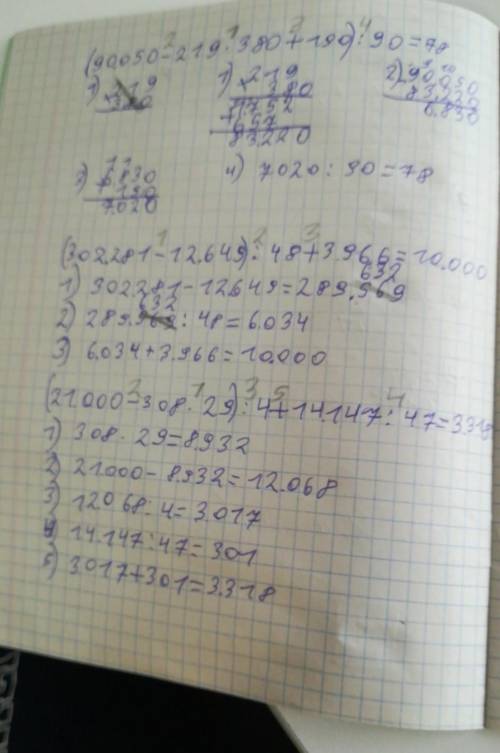 (90.050-219·380+190):90=78
1) 219
×380
1) 219
×380
1752
+657
83.220
2) 90.050
-83.220
6.830
3) 6.830
+190
7.020
4) 7020:90=78
(302281-12.649):48+3.966=10.000
1) 302281-12649=289.632
2) 289.632:48=6.034
3) 6.034+3.966=10.000
(21.000-308·29):4+14.147:47=3.318
1) 308·29=8.932
2) 21000-8.932=12.068
3) 12068:4=3.017
4) 14.147:47=301
5) 3.017+301=3.318